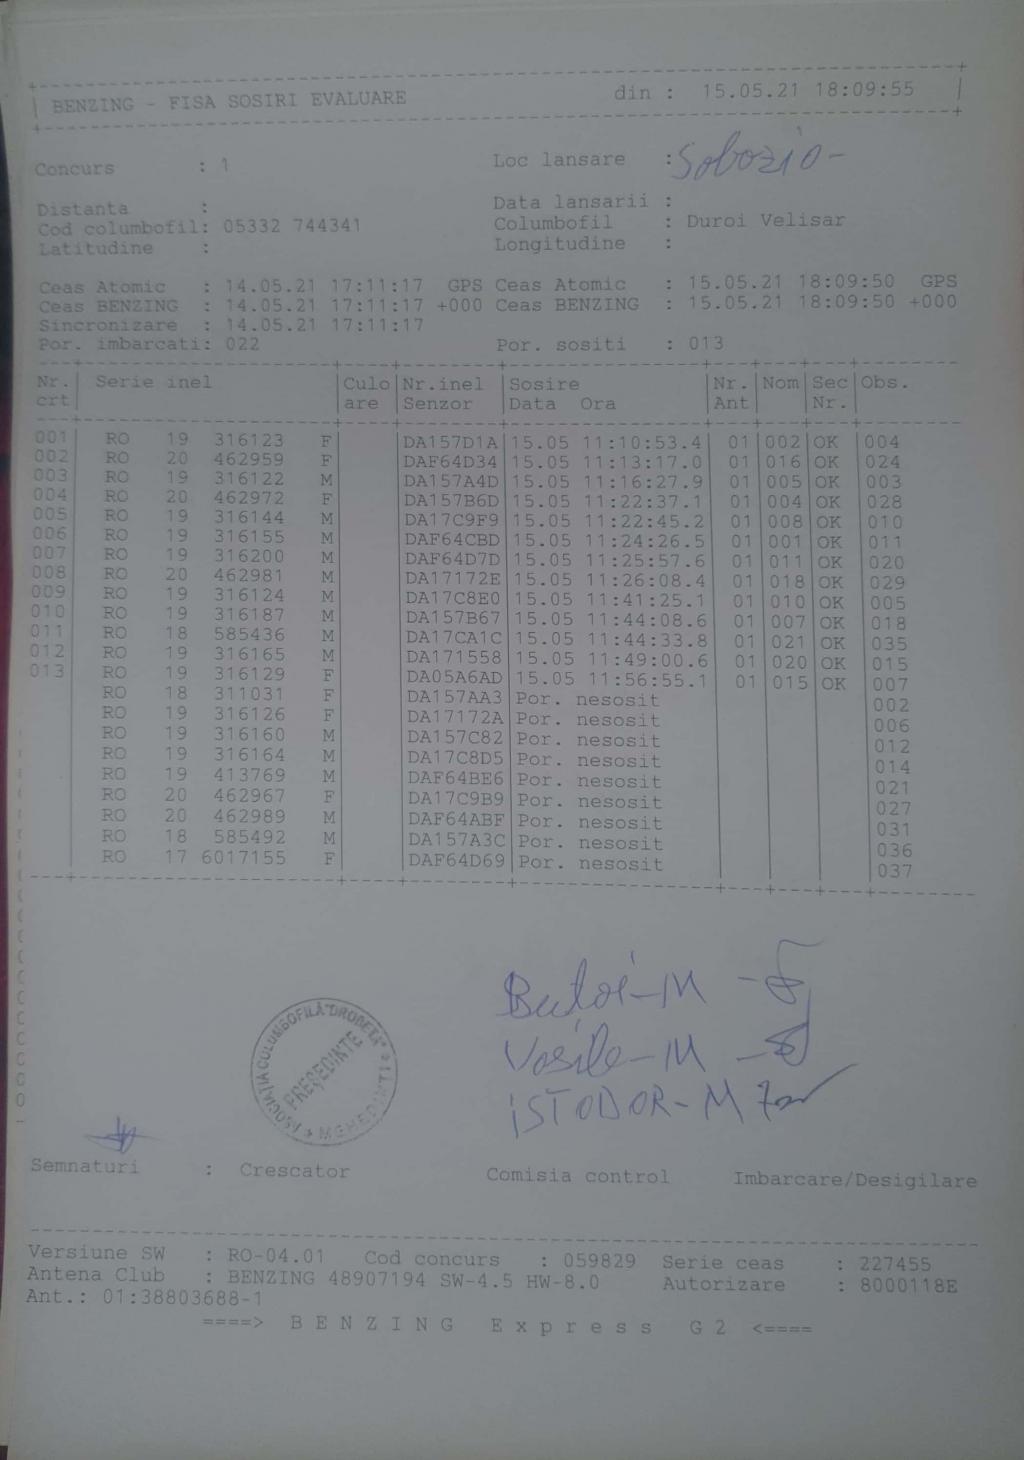 BENZING - FISA SOSIRI EVALUARE din : 15.05.21 18:09:55
Concurs : 1 Loc lansare : Sobozio-
Distanta : Data lansarii :
Cod columbofil: 05332 744341 Columbofil : Duroi Velisar
Latitudine : Longitudine :
Ceas Atomic : 14.05.21 17:11:17 GPS Ceas Atomic : 15.05.21 18:09:50 GPS
Ceas BENZING : 14.05.21 17:11:17 +000 Ceas BENZING : 15.05.21 18:09:50 +000
Sincronizare : 14.05.21 17:11:17
Por. imbarcati: 022 Por. sositi : 013
Nr. Serie inel Culo Nr.inel Sosire Nr. Nom Sec Obs.
crt are Senzor Data Ora Ant Nr.
001 RO 19 316123 F DA157D1A 15.05 11:10:53.4 01 002 OK 004
002 RO 20 462959 F DAF64D34 15.05 11:13:17.0 01 016 OK 024
003 RO 19 316122 M DA157A4D 15.05 11:16:27.9 01 005 OK 003
004 RO 20 462972 F DA157B6D 15.05 11:22:37.1 01 004 OK 028
005 RO 19 316144 M DA17C9F9 15.05 11:22:45.2 01 008 OK 010
006 RO 19 316155 M DAF64CBD 15.05 11:24:26.5 01 001 OK 011
007 RO 19 316200 M DAF64D7D 15.05 11:25:57.6 01 011 OK 020
008 RO 20 462981 M DA17172E 15.05 11:26:08.4 01 018 OK 029
009 RO 19 316124 M DA17C8E0 15.05 11:41:25.1 01 010 OK 005
010 RO 19 316187 M DA157B67 15.05 11:44:08.6 01 007 OK 018
011 RO 18 585436 M DA17CA1C 15.05 11:44:33.8 01 021 OK 035
012 RO 19 316165 M DA171558 15.05 11:49:00.6 01 020 OK 015
013 RO 19 316129 F DA05A6AD 15.05 11:56:55.1 01 015 OK 007
RO 18 311031 F DA157AA3 Por. nesosit 002
RO 19 316126 F DA17172A Por. nesosit 006
RO 19 316160 M DA157C82 Por. nesosit 012
RO 19 316164 M DA17C8D5 Por. nesosit 014
RO 19 413769 M DAF64BE6 Por. nesosit 021
RO 20 462967 F DA17C9B9 Por. nesosit 027
RO 20 462989 M DAF64ABF Por. nesosit 031
RO 18 585492 M DA157A3C Por. nesosit 036
RO 17 6017155 F DAF64D69 Por. nesosit 037
Butoi-M
Vasile-M
ISTODOR-M
ASOCIAȚIA COLUMBOFILĂ "DROBETA"
PREȘEDINTE
MGHEDINTI
Semnaturi : Crescator Comisia control Imbarcare/Desigilare
Versiune SW : RO-04.01 Cod concurs : 059829 Serie ceas : 227455
Antena Club : BENZING 48907194 SW-4.5 HW-8.0 Autorizare : 8000118E
Ant.: 01:38803688-1
====> B E N Z I N G E x p r e s s G 2 <====